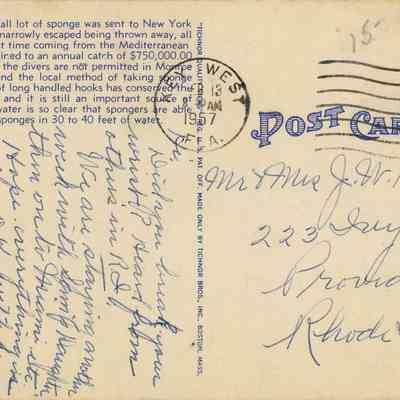 all lot of sponge was sent to New York
narrowly escaped being thrown away, all
t time coming from the Mediterranean
ired to an annual catch of $750,000.00
the divers are not permitted in Monroe
nd the local method of taking sponge
of long handled hooks has conserved the
and it is still an important source of
water is so clear that spongers are able
sponges in 30 to 40 feet of water.
Did you break your
wrist? Heard from
others in R.I.
We are staying another
week with
then on to Miami etc.
Hope everything is
TICHNOR QUALITY
REG. U. S. PAT. OFF. MADE ONLY BY TICHNOR BROS., INC., BOSTON, MASS.
KEY WEST
13
AM
1957
FLA.
15
POST CAR
Mr & Mrs J. W.
223
Provid
Rhode